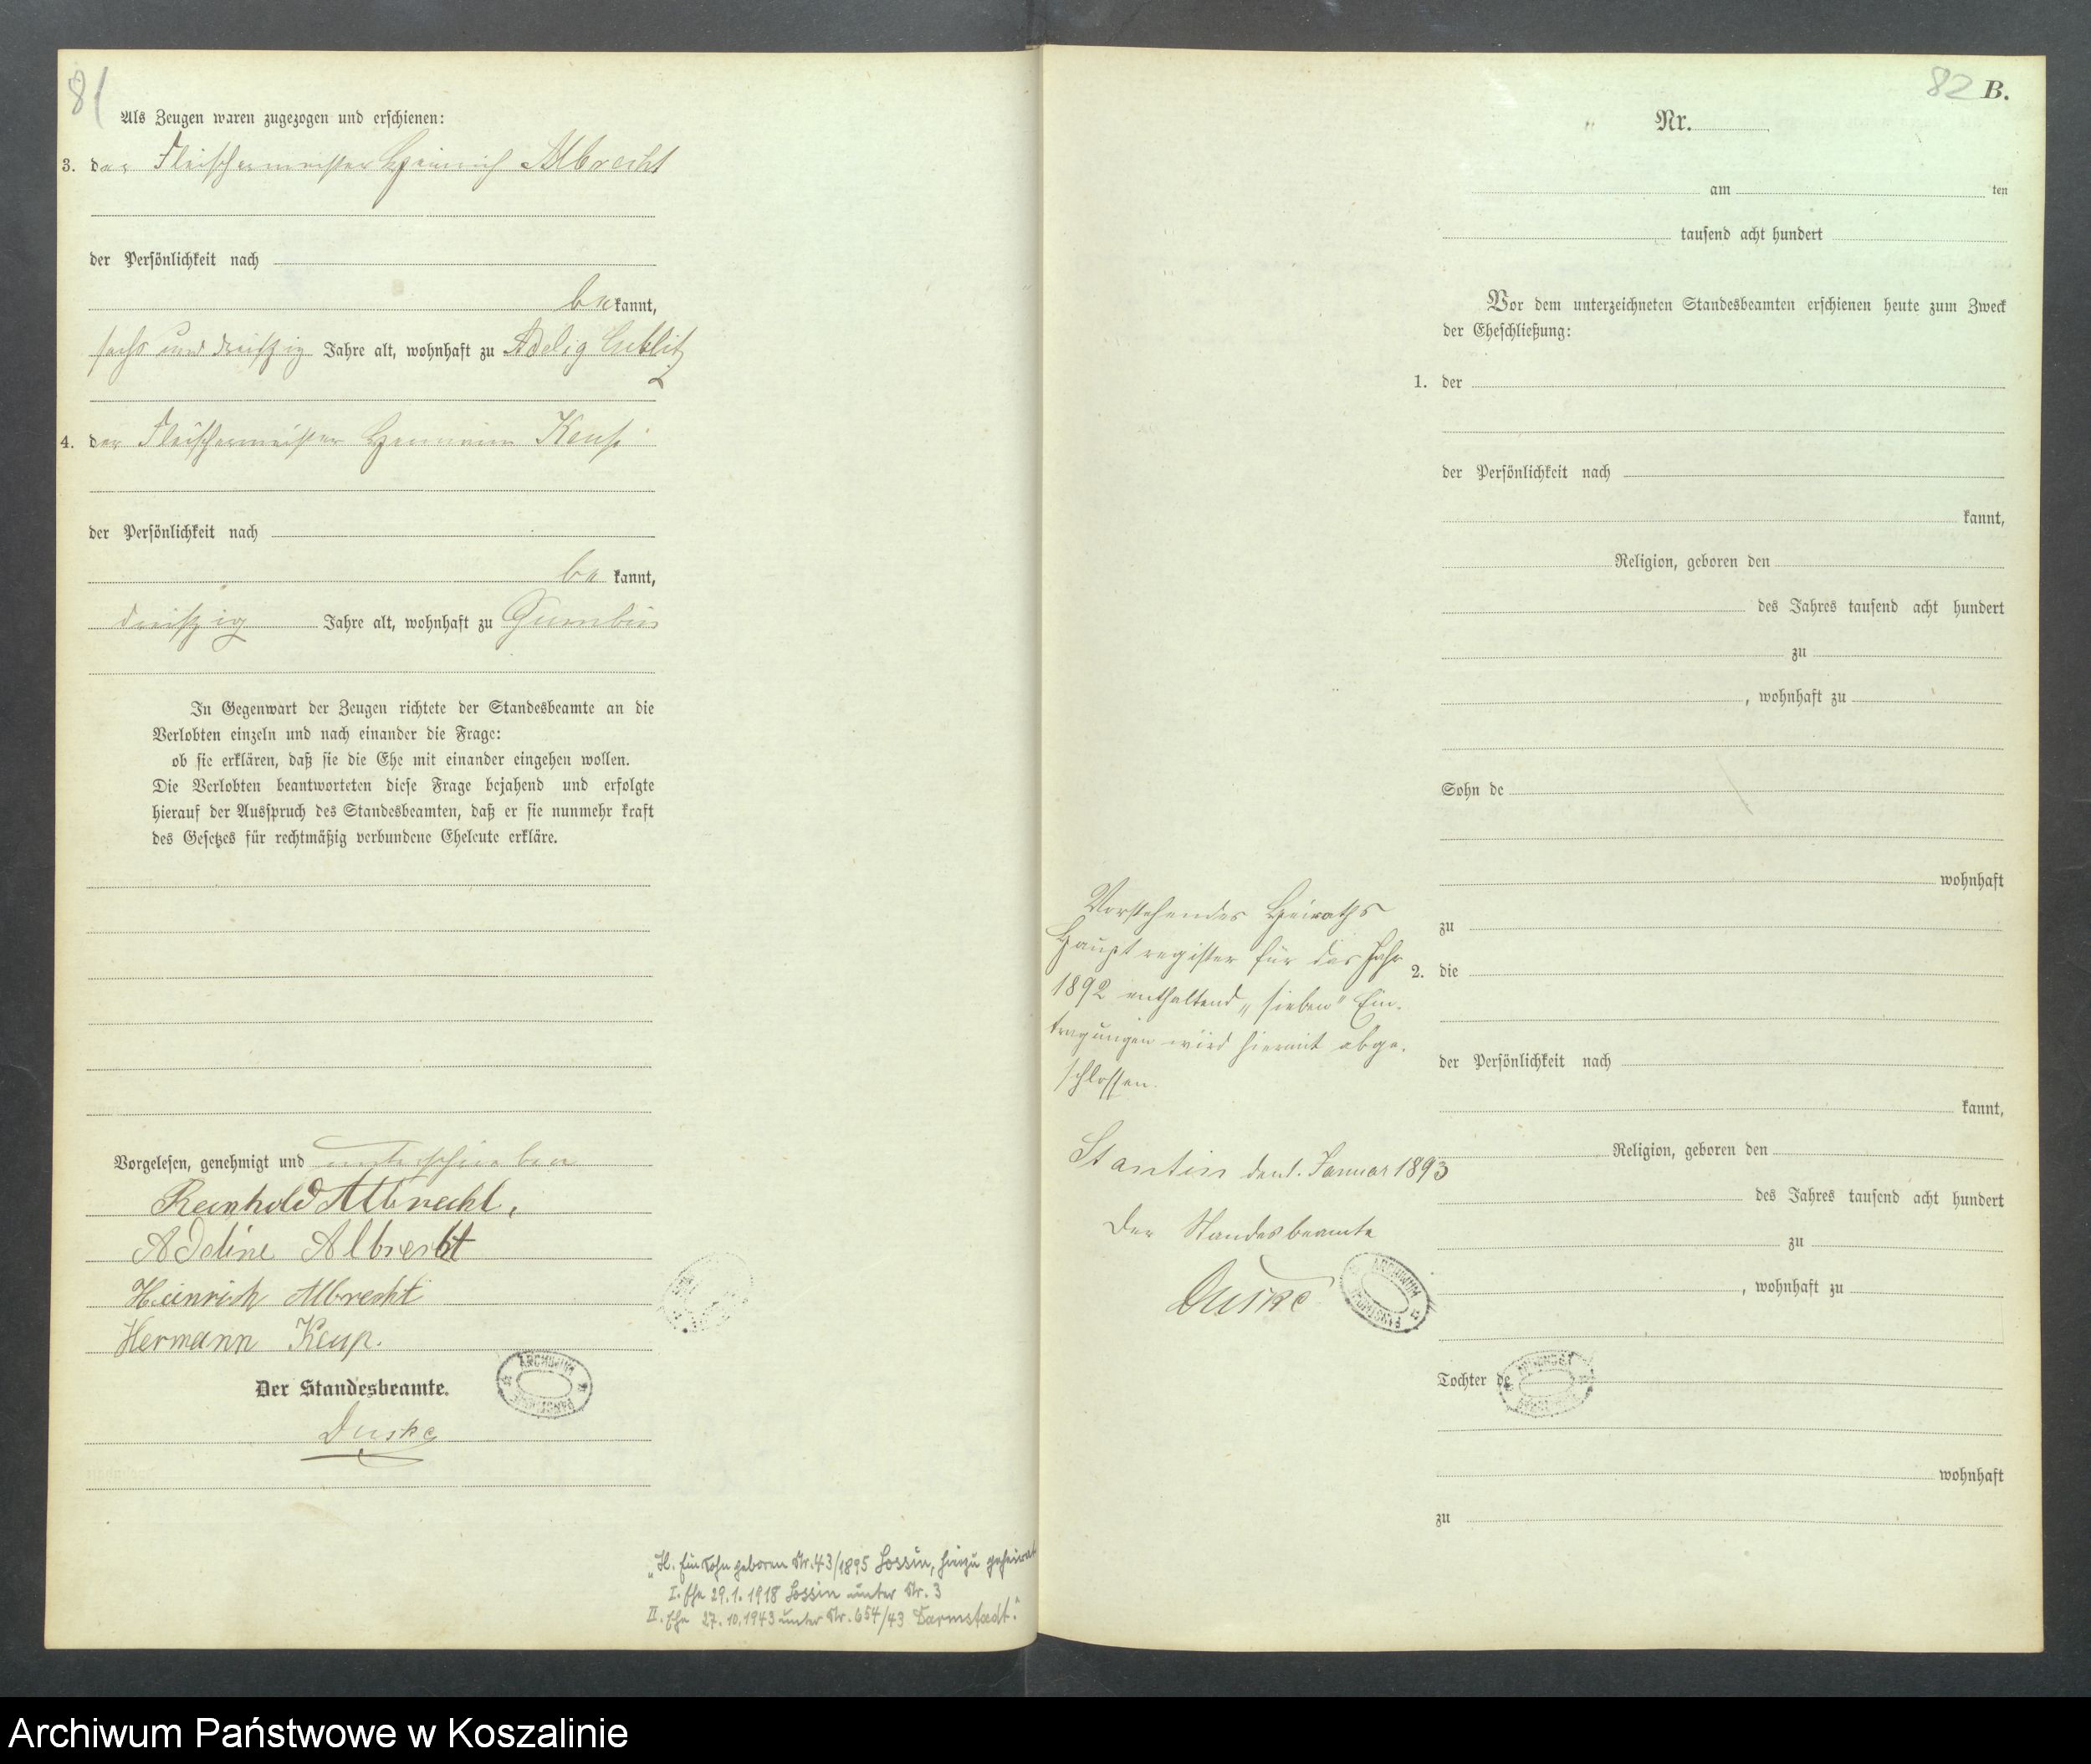 81
Als Zeugen waren zugezogen und erschienen:
3. der Fleischermeister Heinrich Albrecht
der Persönlichkeit nach
bekannt,
sechs und dreißig Jahre alt, wohnhaft zu Adelig Lublitz
4. der Fleischermeister Hermann Keup
der Persönlichkeit nach
be kannt,
dreißig Jahre alt, wohnhaft zu Gumbin
In Gegenwart der Zeugen richtete der Standesbeamte an die
Verlobten einzeln und nach einander die Frage:
ob sie erklären, daß sie die Ehe mit einander eingehen wollen.
Die Verlobten beantworteten diese Frage bejahend und erfolgte
hierauf der Ausspruch des Standesbeamten, daß er sie nunmehr kraft
des Gesetzes für rechtmäßig verbundene Eheleute erkläre.
Vorgelesen, genehmigt und unterschrieben
Reinhold Albrecht,
Adeline Albrecht
Heinrich Albrecht
Hermann Keup.
Der Standesbeamte.
Duske
ARCHIWUM PAŃSTWOWE
„H. Ein Sohn geboren Nr. 43/1895 Lossin, hinzu geheirat
I. Ehe 29.1.1918 Lossin unter Nr. 3
II. Ehe 27.10.1943 unter Nr. 654/43 Darmstadt.“
82 B.
Nr.
am ten
tausend acht hundert
Vor dem unterzeichneten Standesbeamten erschienen heute zum Zweck
der Eheschließung:
1. der
der Persönlichkeit nach
kannt,
Religion, geboren den
des Jahres tausend acht hundert
zu
, wohnhaft zu
Sohn de
wohnhaft
zu
2. die
der Persönlichkeit nach
kannt,
Religion, geboren den
des Jahres tausend acht hundert
zu
, wohnhaft zu
Tochter de
wohnhaft
zu
Vorstehendes Heiraths
Hauptregister für das Jahr
1892 enthaltend „sieben“ Ein-
tragungen wird hiermit abge-
schlossen.
Stantin den 1. Januar 1893
Der Standesbeamte
Duske
ARCHIWUM PAŃSTWOWE
Archiwum Państwowe w Koszalinie